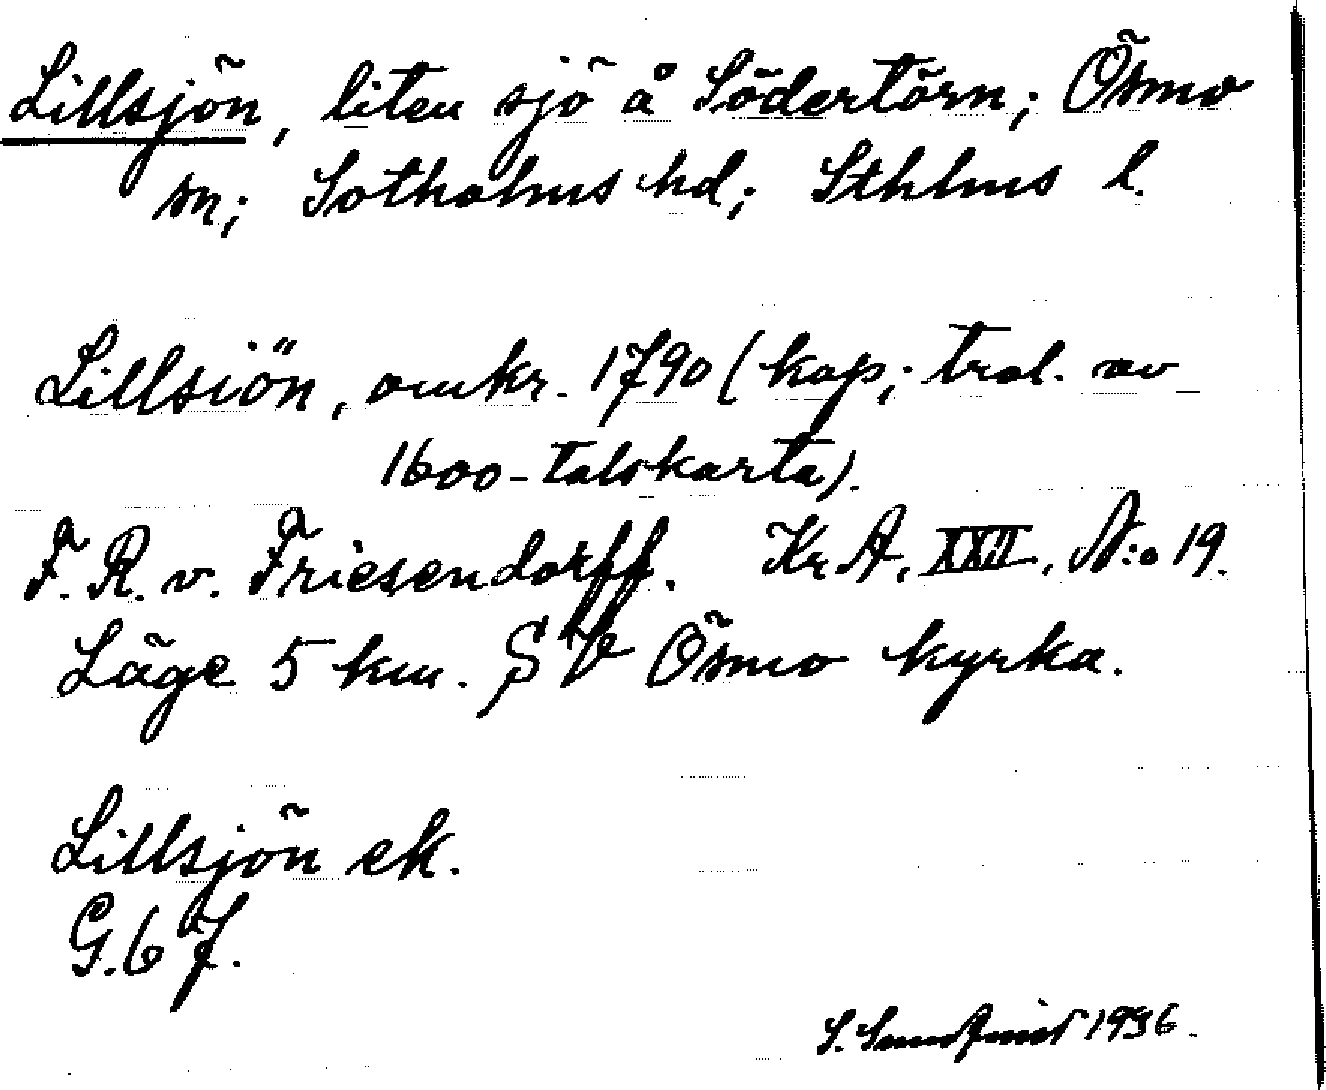 Lillsjön, liten sjö å Södertörn; Ösmo
sn; Sotholms hd; Sthlms l.
Lillsiön, omkr. 1790 (kop; trol. av
1600-talskarta).
F. R. v. Friesendorff. Kr A, XXII, N:o 19.
Läge 5 km. SV Ösmo kyrka.
Lillsjön ek.
G. 67.
S. Sundqvist 1936.